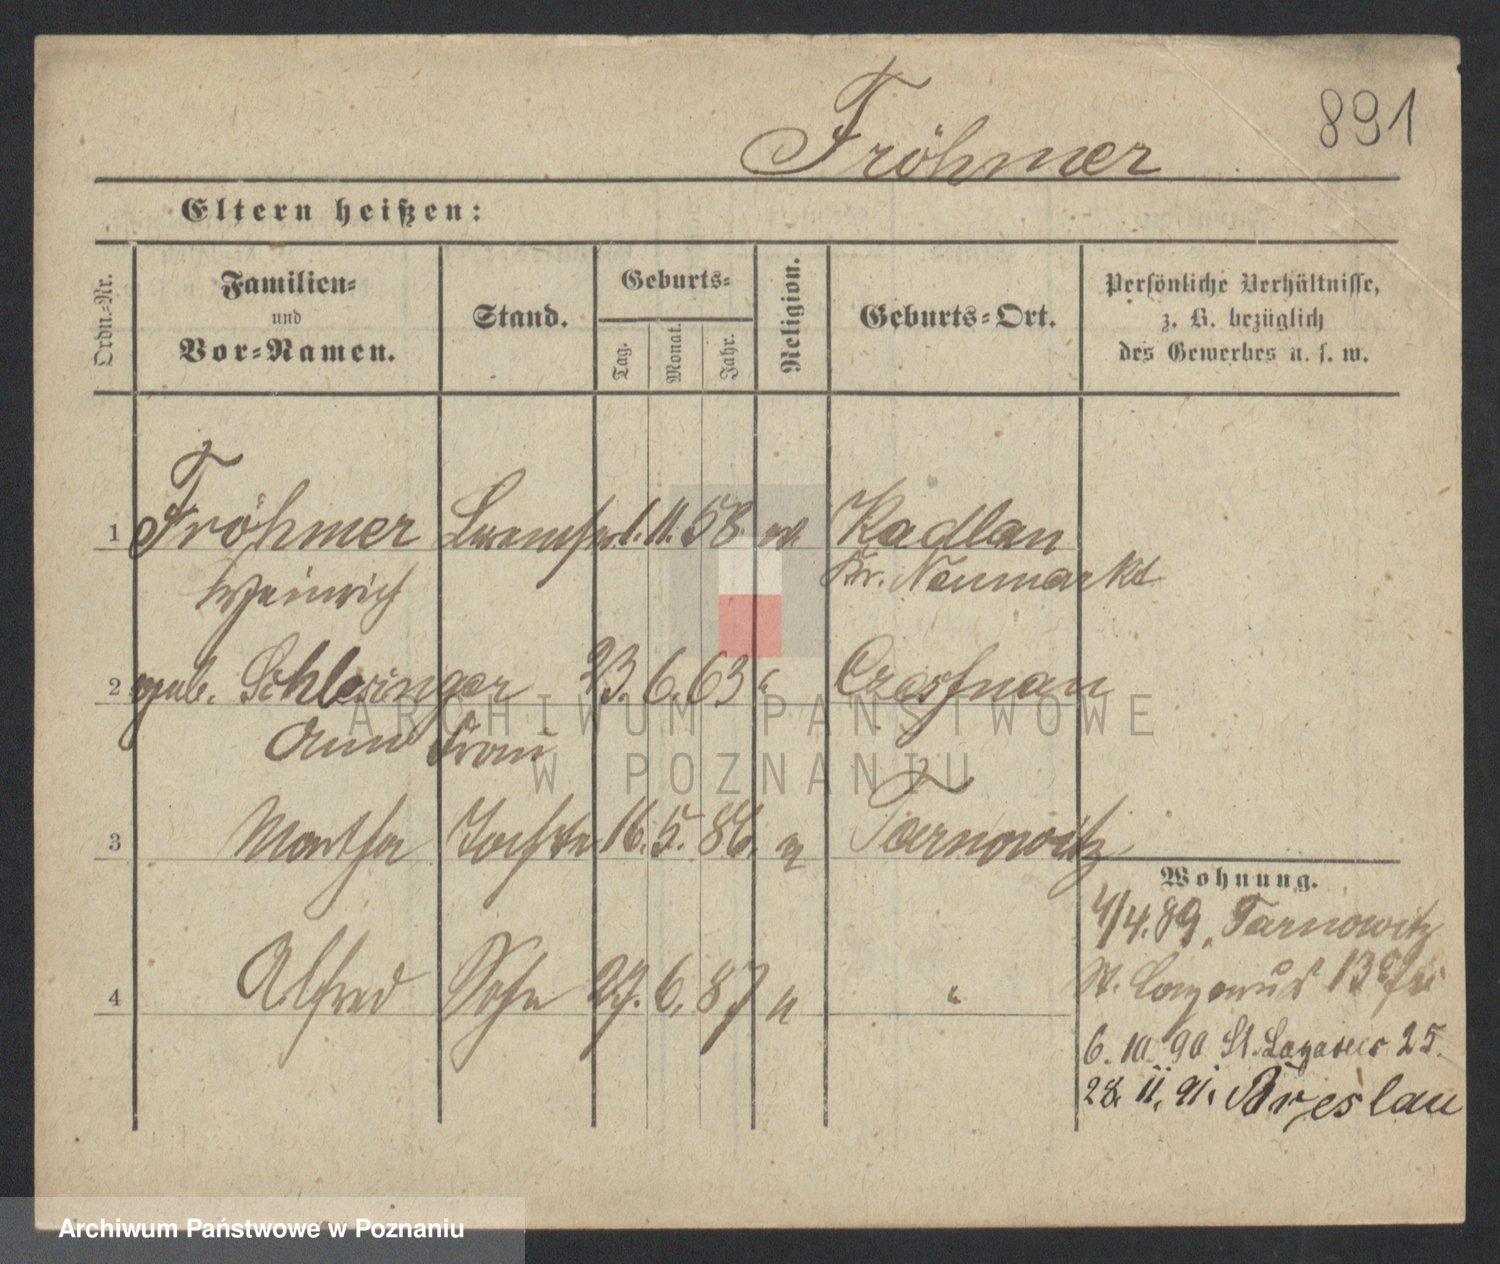 891
Fröhmer
Eltern heißen:
Ordn.-Nr.
Familien-
und
Vor-Namen.
Stand.
Geburts-
Tag.
Monat.
Jahr.
Religion.
Geburts-Ort.
Persönliche Verhältnisse,
z. B. bezüglich
des Gewerbes u. s. w.
1 Fröhmer 1. 11. 58. Kadlau
Heinrich Kr. Neumarkt
2 geb. Schlesinger 23. 6. 63 "
Anna Frau
3 Martha Tochter 16. 5. 86. Tarnowitz
4 Alfred Sohn 27. 6. 87 "
Wohnung.
4/4. 89, Tarnowitz
St. Lazarus 13
6. 10. 90 St. Lazarus 25.
28. 11. 91. Breslau
ARCHIWUM PAŃSTWOWE
W POZNANIU
Archiwum Państwowe w Poznaniu